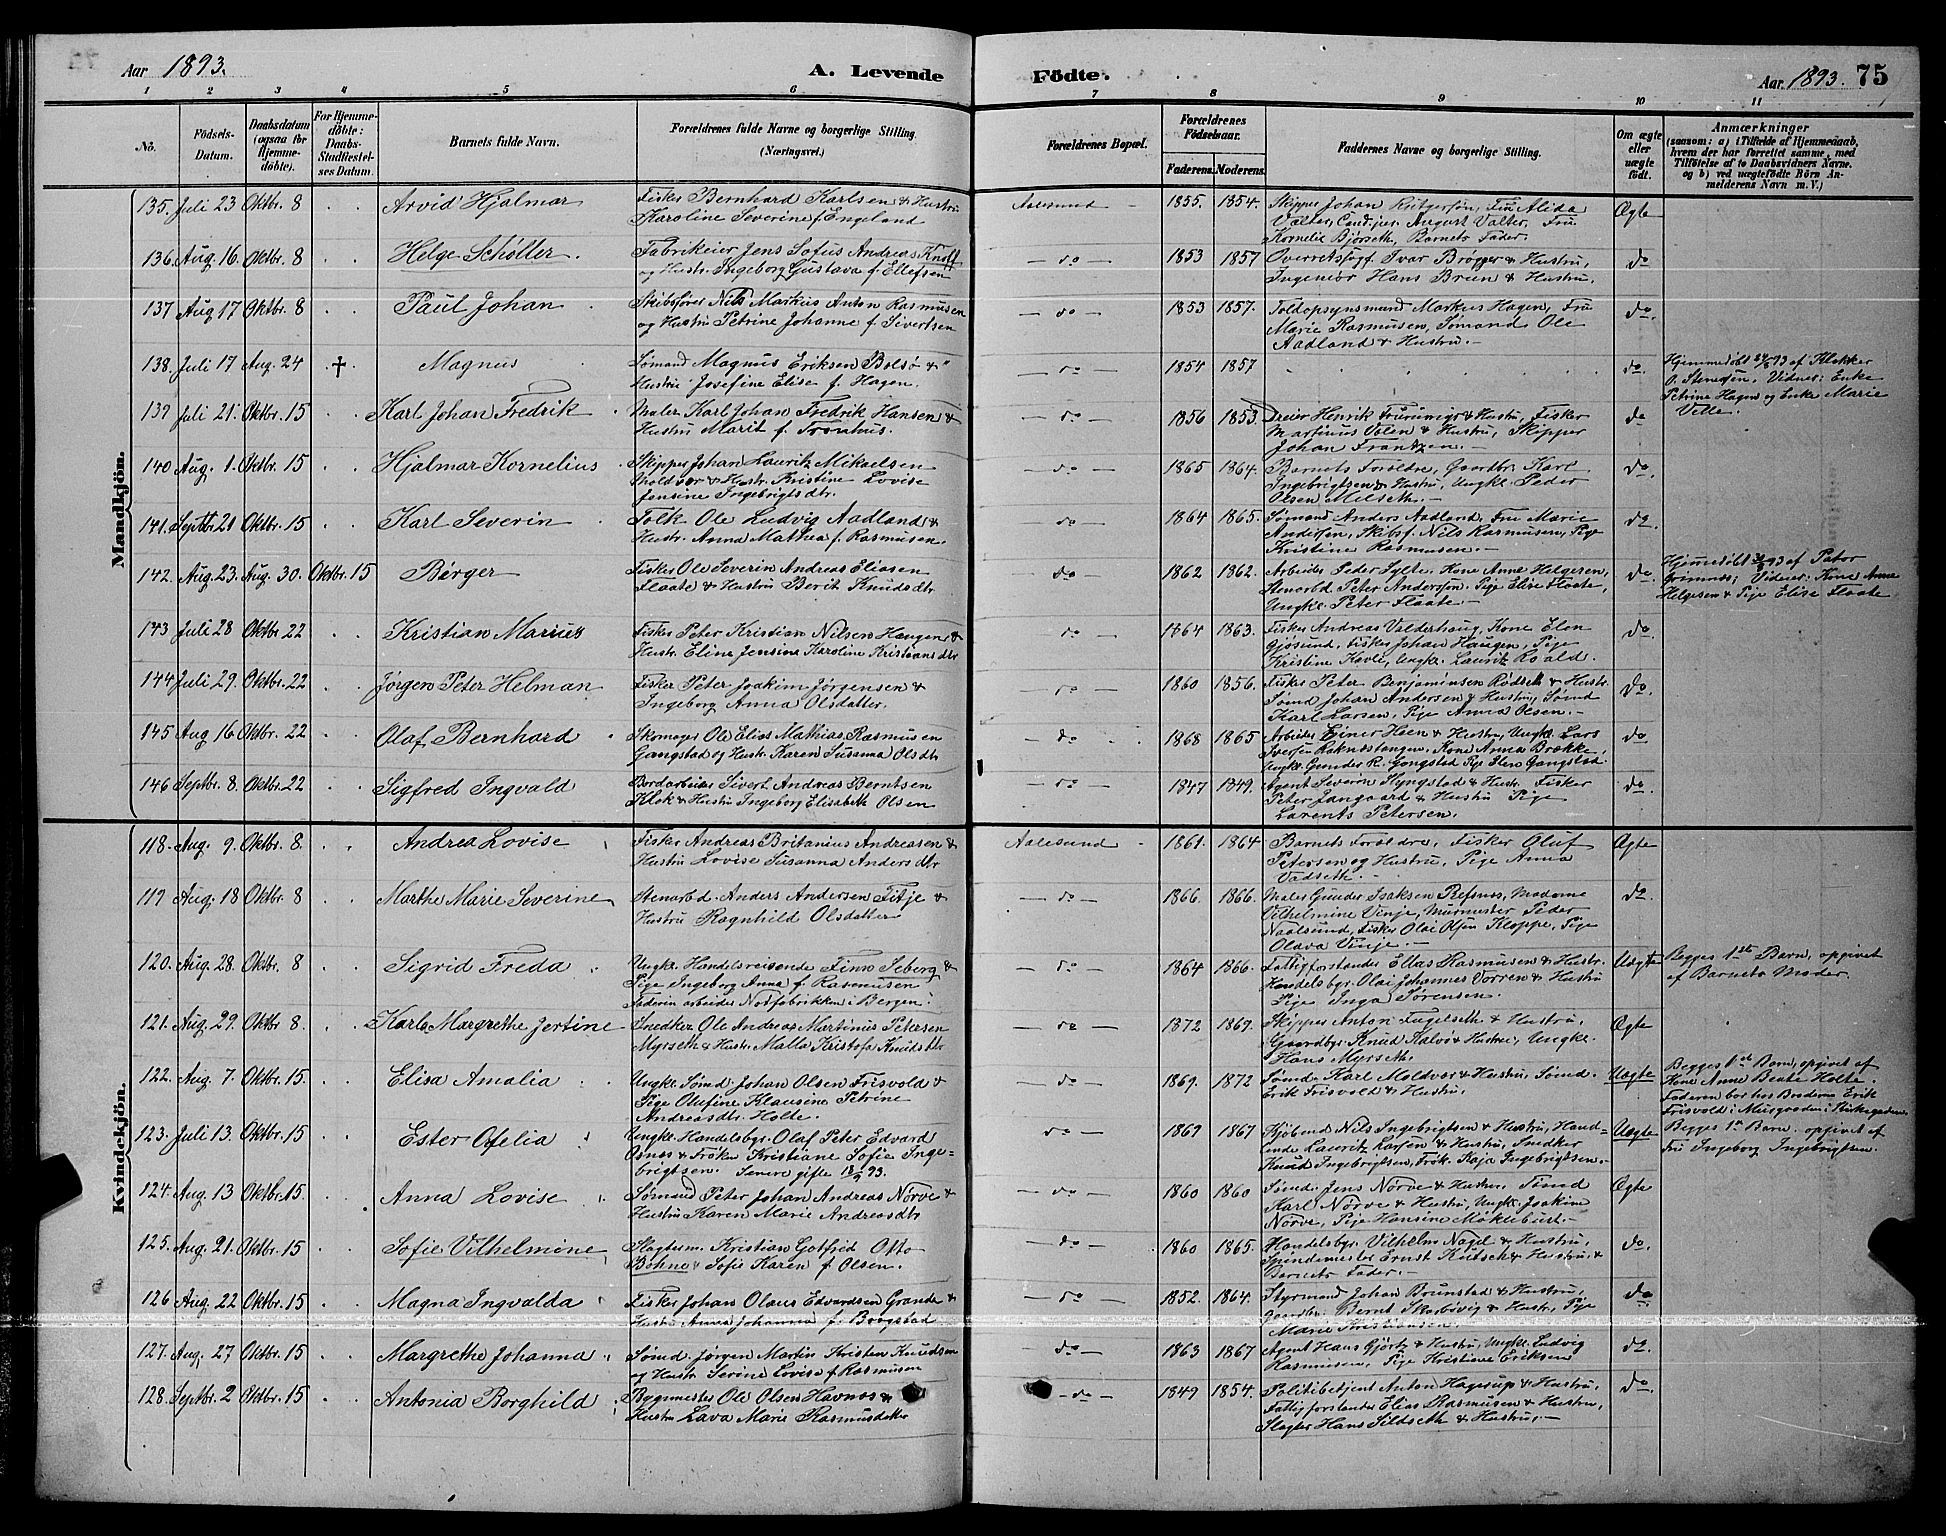 Aar 1893. A. Levende Födte. Aar 1893. 75
1 2 3 4 5 6 7 8 9 10 11
No. Födsels-Datum. Daabsdatum (ogsaa for Hjemme-döbte). For Hjemme-döbte: Daabs-Stadfæstel-ses Datum. Barnets fulde Navn. Forældrenes fulde Navne og borgerlige Stilling. (Næringsvei.) Forældrenes Bopæl. Forældrenes Födselsaar. Faderens. Moderens. Faddernes Navne og borgerlige Stilling. Om ægte eller uægte födt. Anmærkninger (saasom: a) i Tilfælde af Hjemmedaab, hvem der har forrettet samme, med Tilföielse af to Daabsvidners Navne, og b) ved uægtefödte Börn An-melderens Navn m. V.)
Mandkjön.
135. Juli 23 Oktbr. 8 Arvid Hjalmar Fisker Bernhard Karlsen & Hustru Aalesund 1855. 1854. Skipper Johan Rutgersøn, Fru Alida Ægte
Karoline Severine f. Engeland Valter, Cand. jur. August Valter, Fru
Kornelie Bjørseth, Barnets Fader.
136. Aug. 16. Oktbr. 8 Helge Schøller. Fabrikeier Jens Sofus Andreas Knoff - do - 1853 1857 Overretssagf. Ivar Brøgger & Hustru, do
og Hustr. Ingeborg Gustava f. Ellefsen Ingeniør Hans Brun & Hustru.
137 Aug 17 Oktbr. 8 Paul Johan Skibsfører Nils Markus Anton Rasmussen - do - 1853 1857. Toldopsynsmand Markus Hagen, Fru do.
og Hustru Petrine Johanne f. Sivertsen Marie Rasmusen, Sømand Ole
Aadland & Hustru. -
138. Juli 17 Aug. 24 † Magnus Sømand Magnus Eriksen Bolsø & - do - 1854 1857 do. Hjemmedøbt 24/8 93 af Klokker
Hustru Josefine Elise f. Hagen. O. Stenersen, Vidner: Enke
Petrine Hagen og Enke Marie
Velle.
139 Juli 21. Oktbr. 15 Karl Johan Fredrik Maler Karl Johan Fredrik Hansen & - do - 1856 1853. Dreier Henrik & Hustru, Fisker do
Hustru Marit f. Martinus Volen & Hustru, Skipper
Johan Frantzen. -
140 Aug. 1. Oktbr. 15 Hjalmar Kornelius Skipper Johan Lauritz Mikaelsen - do - 1865 1864. Barnets Forældre, Gaardbr. Karl do.
& Hustr. Kristine Lovise Ingebrigtsen & Hustru, Ungk. Peder
Jensine Ingebrigtsdtr. Olsen Melseth. -
141. Septbr 21 Oktbr. 15 Karl Severin Tolk Ole Ludvig Aadland & - do - 1864 1865. Sømand Anders Aadland, Fru Marie do.
Hustr. Anna Mathea f. Rasmusen. Andersen, Skibsf. Nils Rasmusen, Pige
Kristine Rasmusen. -
142. Aug. 23. Aug. 30. Oktbr. 15 Børger Fisker Ole Severin Andreas Eliasen - do - 1862 1862. Arbeider Peder Sylte, Kone Anne Helgesen, do. Hjemmedøbt 30/8 93 af Pator
Flaate & Hustru Berit Knudsdtr. Stenarbd. Peter Andersøn, Pige Elise Flaate, Grimnes; Vidner: Kone Anne
Ungk. Peter Flaate. - Helgesen & Pige Elise Flaate.
143 Juli 28 Oktbr 22 Kristian Marius Fisker Peter Kristian Nilsen Haugen & - do - 1864 1863. Fisker Andreas Valderhaug, Kone Elen do.
Hustr. Eline Jensine Karoline Kristiansdtr. Gjøsund, Fisker Johan Haugen, Pige
Kristine Kavli, Ungk. Lauritz Roald.
144 Juli 29. Oktbr. 22 Jørgen Peter Helman Fisker Peter Joakim Jørgensen & - do - 1860 1856. Fisker Peter Benjaminsen Rødseth & Hustr. do.
Ingeborg Anna Olsdatter. Sømd Johan Andersen & Hustru, Sømd
Karl Larsen, Pige Anna Olsen. -
145 Aug 16 Oktbr. 22 Olaf Bernhard Skomager Ole Elias Mathias Rasmussen - do - 1868 1865 Arbeider Einer Heen & Hustru, Ungk. Lars do
Gangstad og Hustr. Karen Susanna Olsdtr Iversen Raknestangen, Kone Anna Brække,
Ungk. Gunder R. Gangstad Pige Elen Gangstad.
146 Septbr. 8. Oktbr. 22 Sigfred Ingvald Bordarbeider Sivert Andreas Berntsen - do - 1847 1849. Agent Severin Slyngstad & Hustr. Fisker do.
Klok & Hustru Ingeborg Elisabeth Olsen Peter Jangaard & Hustru Pige
Larents Petersen.
Kvindekjön.
118. Aug. 9. Oktbr. 8. Andrea Lovise Fisker Andreas Britanius Andreasen & Aalesund 1861. 1864 Barnets Forældre, Fisker Oluf Ægte
Hustru Lovise Susanna Andersdtr. Petersen og Hustru, Pige Anna
Vadseth. -
119 Aug. 18 Oktbr. 8 Marthe Marie Severine Stenarbd. Anders Andersen Titje & - do - 1866. 1866. Maler Gunder Isaksen Refsnes, Madame do.
Hustru Ragnhild Olsdatter Vilhelmine Vinje, Murmester Peder
Naalsund, Fisker Olai Olsen Kloppe, Pige
Olava Vinje. -
120. Aug. 28. Oktbr. 8 Sigrid Freda Ungk. Handelsreisende Finn Seberg & - do - 1864 1866. Fattigforstander Elias Rasmussen & Hustr. Uægte Begges 1ste Barn, opgivet
Pige Ingeborg Anna f. Rasmusen Handelsbgr. Olai Johannes Vorren & Hustru af Barnets Moder.
Faderen arbeider Notfabrikken i Bergen. Pige Inga Sørensen.
121. Aug. 29. Oktbr 8. Karla Margrethe Jertine Snedker Ole Andreas Martinus Petersen - do - 1872 1869. Skipper Anton Fugelseth & Hustru, Ægte
Myrseth & Hustr. Malla Kristofa Knudsdtr Gaardbgr. Knud Kalvø & Hustru, Ungk.
Hans Myrseth.
122. Aug. 7. Oktbr. 15. Elisa Amalia Ungk. Sømd. Johan Olsen Frisvold & - do - 1869. 1872 Sømd. Karl Moldvor & Hustru, Sømd. Uægte Begges 1st Barn, opgivet af
Pige Olufine Klausine Petrine Erik Frisvold & Hustru. Kone Anne Bente Holte.
Andreasdtr. Holte. Faderen bor hos Broderen Erik
Frisvold i Musgraden i Kirkegaden.
123. Juli 13. Oktbr. 15 Ester Ofelia Ungk. Handelsbgr. Olaf Peter Edvard - do - 1869 1867 Kjøbmd Nils Ingebrigtsen & Hustru, Uægte Begges 1ste Barn. opgivet af
Osnes & Frøken Kristiane Sofie Inge- Lauritz Larsen & Hustru, Snedker Fru Ingeborg Ingebrigtsen.
brigtsen. Senere gifte 13/9 93. Knud Ingebrigtsen, Frøk. Kaja Ingebrigtsen. -
124. Aug. 13 Oktbr. 15. Anna Lovise Sømand Peter Johan Andreas Nørve & - do - 1860 1860 Sømd. Jens Nørve & Hustru, Sømd Ægte
Hustru Karen Marie Andreasdtr Karl Nørve & Hustru, Ungk. Joakim
Nørve, Pige Hansine Møklebust. -
125. Aug. 21. Oktbr. 15 Sofie Vilhelmine Slagterm. Kristian Gotfrid Otto - do - 1860 1865. Handelsbgr. Vilhelm Nagel & Hustru, do.
Böhne & Sofie Karen f. Olsen. Spindemester Ernst Kutsch & Hustru, &
Barnets Fader. -
126 Aug. 22 Oktbr. 15 Magna Ingvalda Fisker Johan Olaus Edvardsen Grande & - do - 1852. 1864. Styrmand Johan Brunstad & Hustru, do
Hustru Anna Johanna f. Brogstad Gaardbr. Bernt Skarbövig & Hustr, Pige
Marie Kristiansen.
127. Aug. 27 Oktbr. 15 Margrethe Johanna Sømd. Jørgen Martin Kristen Knudsen - do - 1863 1867 Agent Hans Gjørtz & Hustru, Ungk. Ludvig do.
og Hustr Serine Lovise f. Rasmusen Rasmusen, Pige Kristiane Eriksen
128. Septbr. 2 Oktbr. 15 Antonia Borghild Bygmester Ole Olsen Havnes & - do - 1849 1854. Politibetjent Anton Hagesup & Hustru, do.
Hustru Lava Marie Rasmusdatter Fattigforstander Elias Rasmusen & Hustru,
Slagter Hans Sildseth & Hustru. -